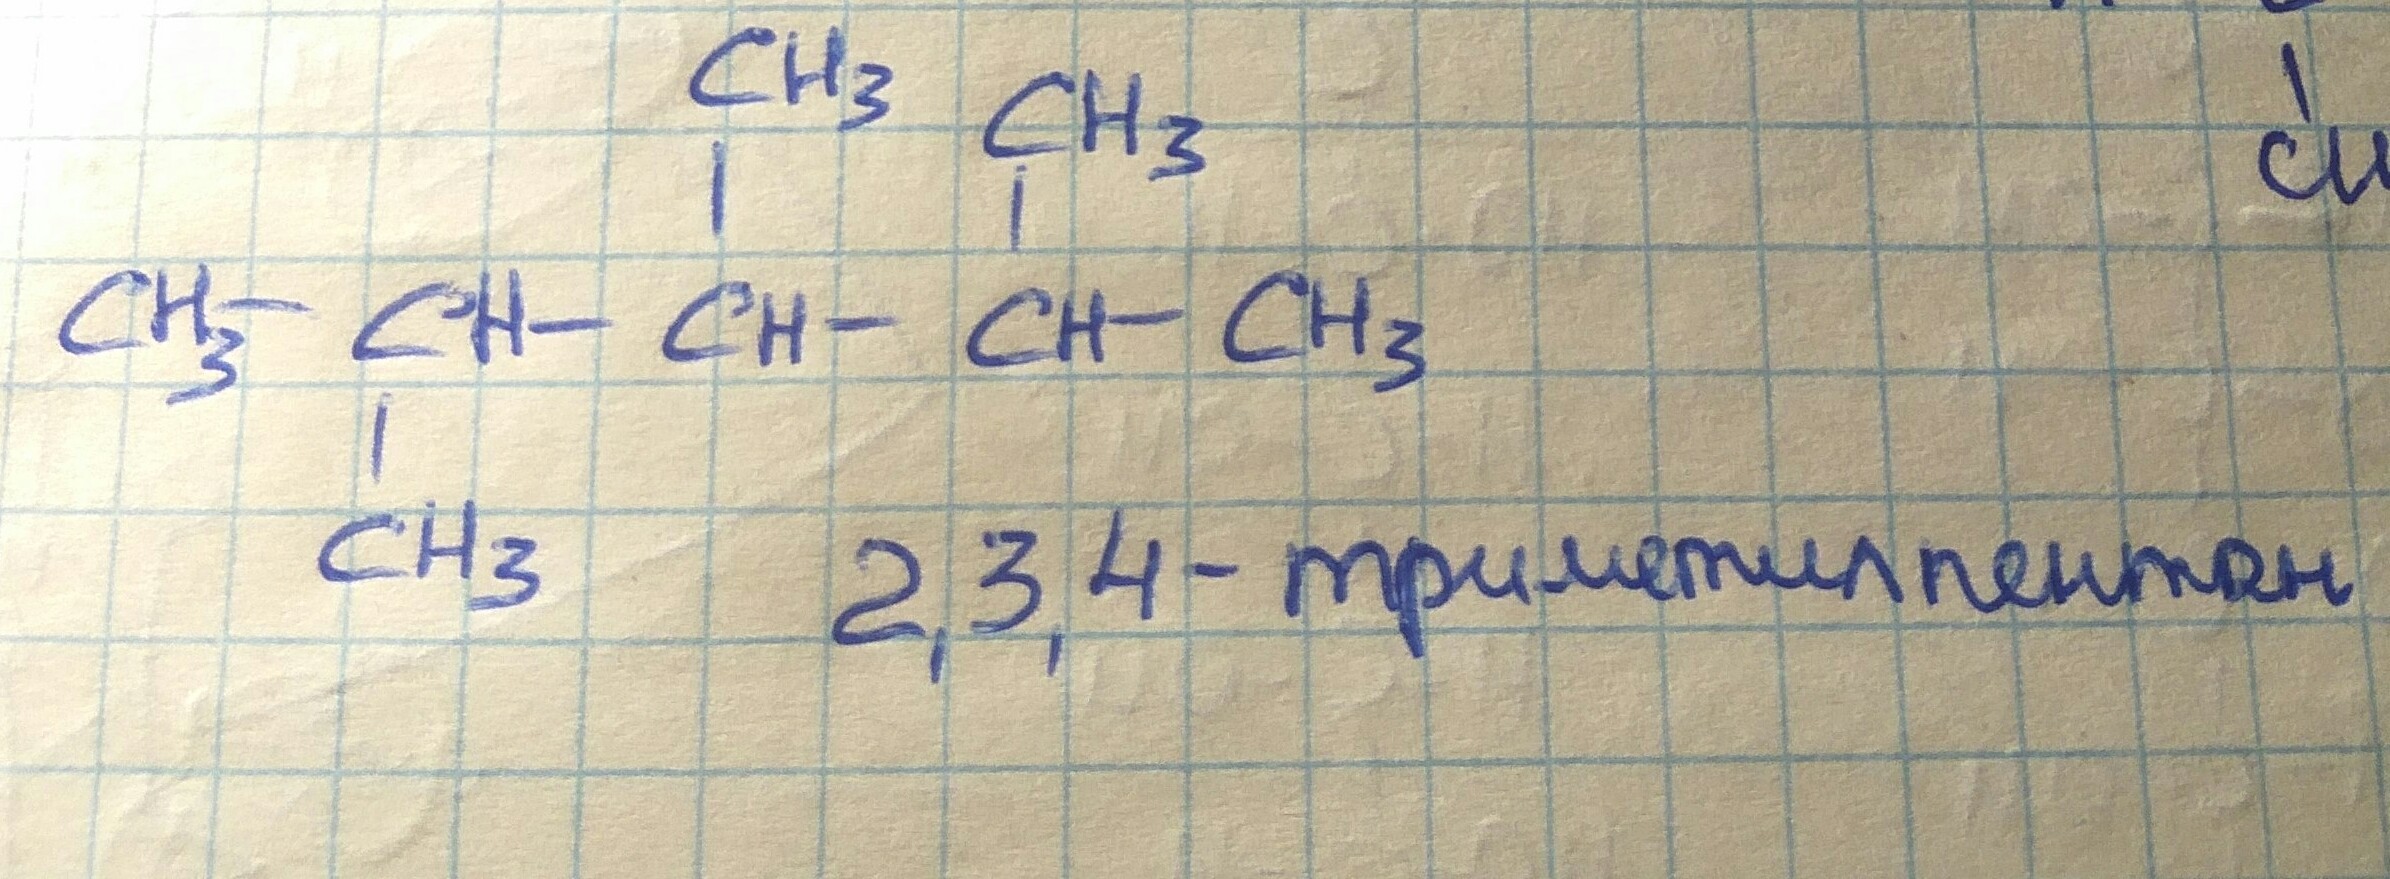 CH3 CH3
CH3 - CH - CH - CH - CH3
CH3 2,3,4 - триметилпентан